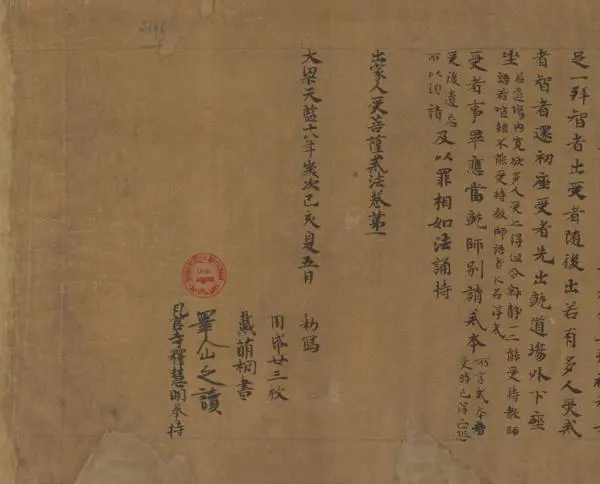 足一拜智者出受者隨後出若有多人受戒
者智者還初座受者先出就道場外下座
坐若道場內寬欲多人受之得但令靜一二能受持教師
語若喧雜不能受持教師語者不名得戒
受者事畢應當就師別請戒本所言戒本者
受時已得正恐
受後遺忘
所以須請及以罪相如法誦持
出家人受菩薩戒法卷第一
大梁天監十八年歲次己亥夏五月 勑寫
用紙廿三枚
戴萌桐書
睪公之讀
瓦官寺釋慧明奉持